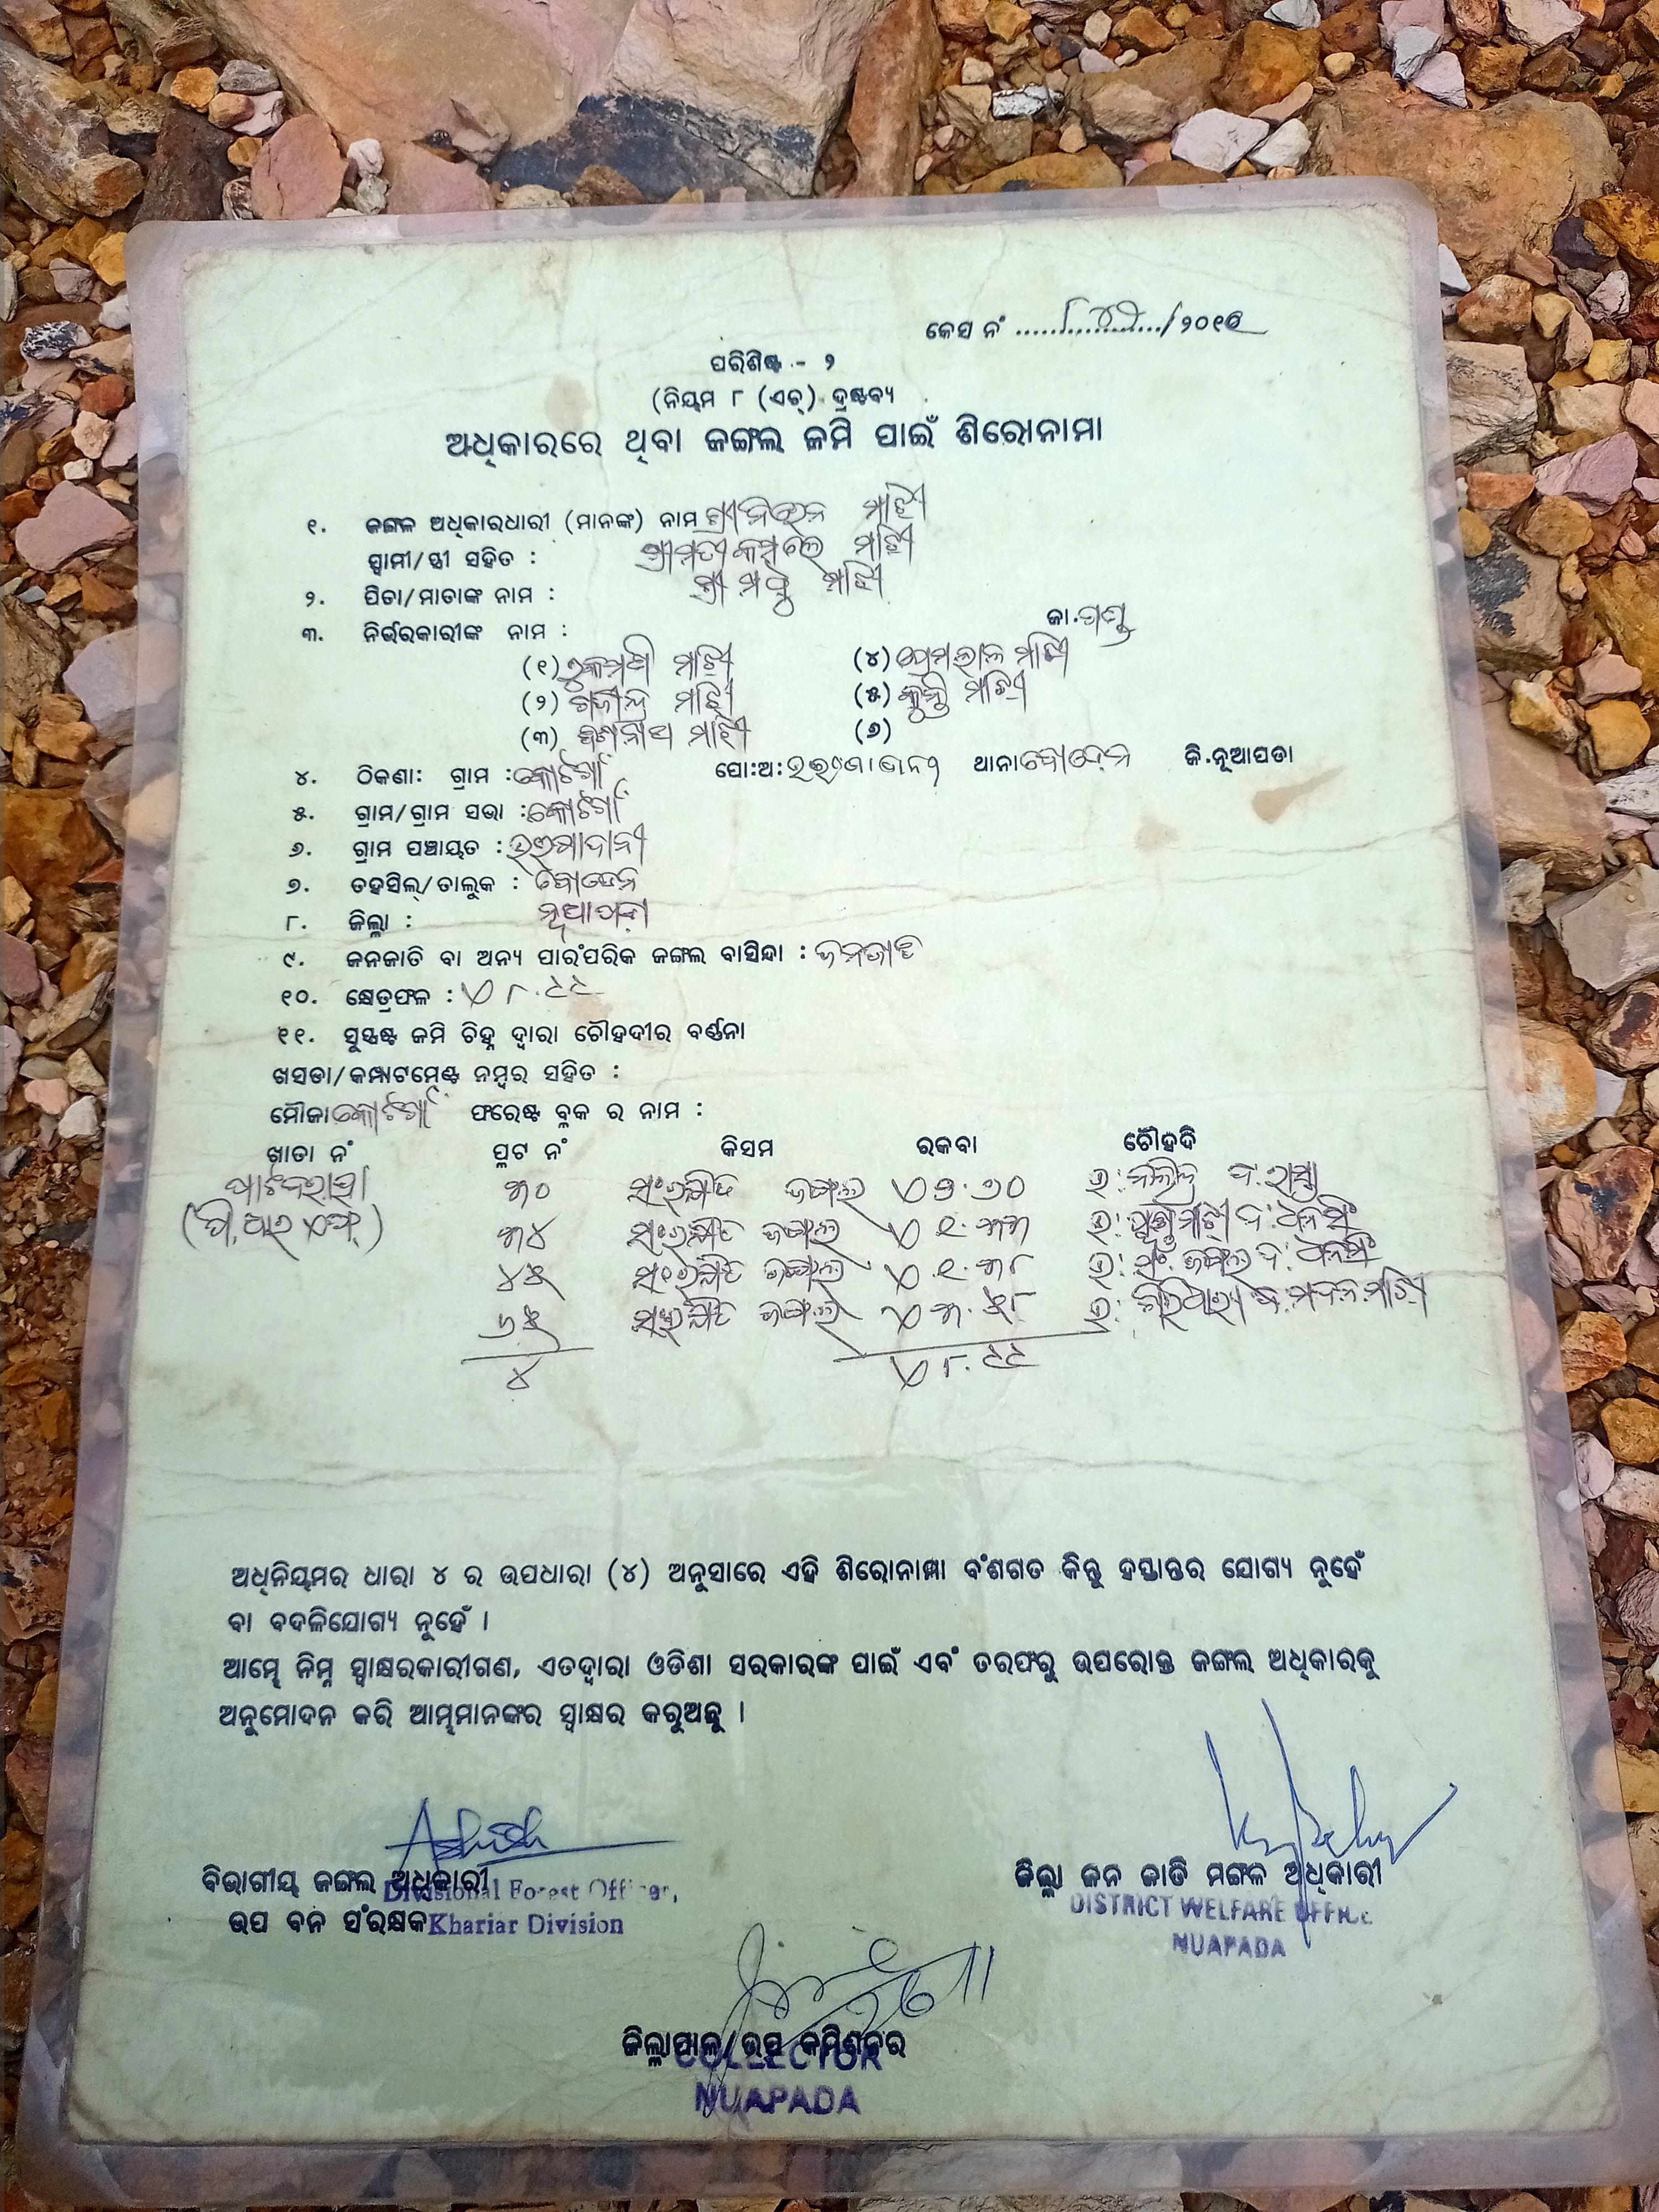 କେସ ନଂ ................/୨୦୧୫
ପରିଶିଷ୍ଟ - ୨
(ନିୟମ ୮ (ଏଚ୍) ଦ୍ରଷ୍ଟବ୍ୟ
ଅଧିକାରରେ ଥିବା ଜଙ୍ଗଲ ଜମି ପାଇଁ ଶିରୋନାମା
୧. ଜଙ୍ଗଳ ଅଧିକାରଧାରୀ (ମାନଙ୍କ) ନାମ ଶ୍ରୀ ମାଝି
ସ୍ୱାମୀ/ସ୍ତ୍ରୀ ସହିତ : ଶ୍ରୀମତୀ ମାଝି
୨. ପିତା/ମାତାଙ୍କ ନାମ : ଶ୍ରୀ ମାଝି
୩. ନିର୍ଭରକାରୀଙ୍କ ନାମ : ଜା. ଗଣ୍ଡ
(୧) ମାଝି (୪) ପ୍ରେମଲାଲ ମାଝି
(୨) ମାଝି (୫) କୁନ୍ତି ମାଝି
(୩) ମାଝି (୬)
୪. ଠିକଣା: ଗ୍ରାମ : କୋଟଗାଁ ପୋ:ଅ: ଥାନା ବୋଡେନ ଜି.ନୂଆପଡା
୫. ଗ୍ରାମ/ଗ୍ରାମ ସଭା : କୋଟଗାଁ
୬. ଗ୍ରାମ ପଞ୍ଚାୟତ :
୭. ତହସିଲ୍/ତାଲୁକ : ବୋଡେନ
୮. ଜିଲ୍ଲା : ନୂଆପଡା
୯. ଜନଜାତି ବା ଅନ୍ୟ ପାରଂପରିକ ଜଙ୍ଗଲ ବାସିନ୍ଦା : ଜନଜାତି
୧୦. କ୍ଷେତ୍ରଫଳ : ୮.୯୯
୧୧. ସୁସ୍ପଷ୍ଟ ଜମି ଚିହ୍ନ ଦ୍ୱାରା ଚୌହଦୀର ବର୍ଣ୍ଣନା
ଖସଡା/କମ୍ପାଟମେଣ୍ଟ ନମ୍ବର ସହିତ :
ମୌଜା କୋଟଗାଁ ଫରେଷ୍ଟ ବ୍ଲକ ର ନାମ :
ଖାତା ନଂ ପ୍ଲଟ ନଂ କିସମ ରକବା ଚୌହଦି
୩୦ ସଂରକ୍ଷିତ ଜଙ୍ଗଲ ଉ: ଦ: ରାସ୍ତା
(ପି.ଆର.ଏଫ୍) ୩୪ ସଂରକ୍ଷିତ ଜଙ୍ଗଲ ୧.୩୩ ଉ: ମାଝି ଦ: ଧନସିଂ
୪୫ ସଂରକ୍ଷିତ ଜଙ୍ଗଲ ୧.୩୮ ଉ: ସଂ. ଜଙ୍ଗଲ ଦ: ଧନସିଂ
୬୫ ସଂରକ୍ଷିତ ଜଙ୍ଗଲ ୩.୫୮ ଉ: ମଦନ ମାଝି
୪ ୮.୯୯
ଅଧିନିୟମର ଧାରା ୪ ର ଉପଧାରା (୪) ଅନୁସାରେ ଏହି ଶିରୋନାମା ବଂଶଗତ କିନ୍ତୁ ହସ୍ତାନ୍ତର ଯୋଗ୍ୟ ନୁହେଁ
ବା ବଦଳିଯୋଗ୍ୟ ନୁହେଁ ।
ଆମ୍ଭେ ନିମ୍ନ ସ୍ୱାକ୍ଷରକାରୀଗଣ, ଏତଦ୍ୱାରା ଓଡିଶା ସରକାରଙ୍କ ପାଇଁ ଏବଂ ତରଫରୁ ଉପରୋକ୍ତ ଜଙ୍ଗଲ ଅଧିକାରକୁ
ଅନୁମୋଦନ କରି ଆମ୍ଭମାନଙ୍କର ସ୍ୱାକ୍ଷର କରୁଅଛୁ ।
Ashish
ବିଭାଗୀୟ ଜଙ୍ଗଲ ଅଧିକାରୀ ଜିଲ୍ଲା ଜନ ଜାତି ମଙ୍ଗଳ ଅଧିକାରୀ
Divisional Forest Officer, DISTRICT WELFARE OFFICE
ଉପ ବନ ସଂରକ୍ଷକ Khariar Division NUAPADA
ଜିଲ୍ଲାପାଳ/ଉପ କମିଶନର
COLLECTOR
NUAPADA